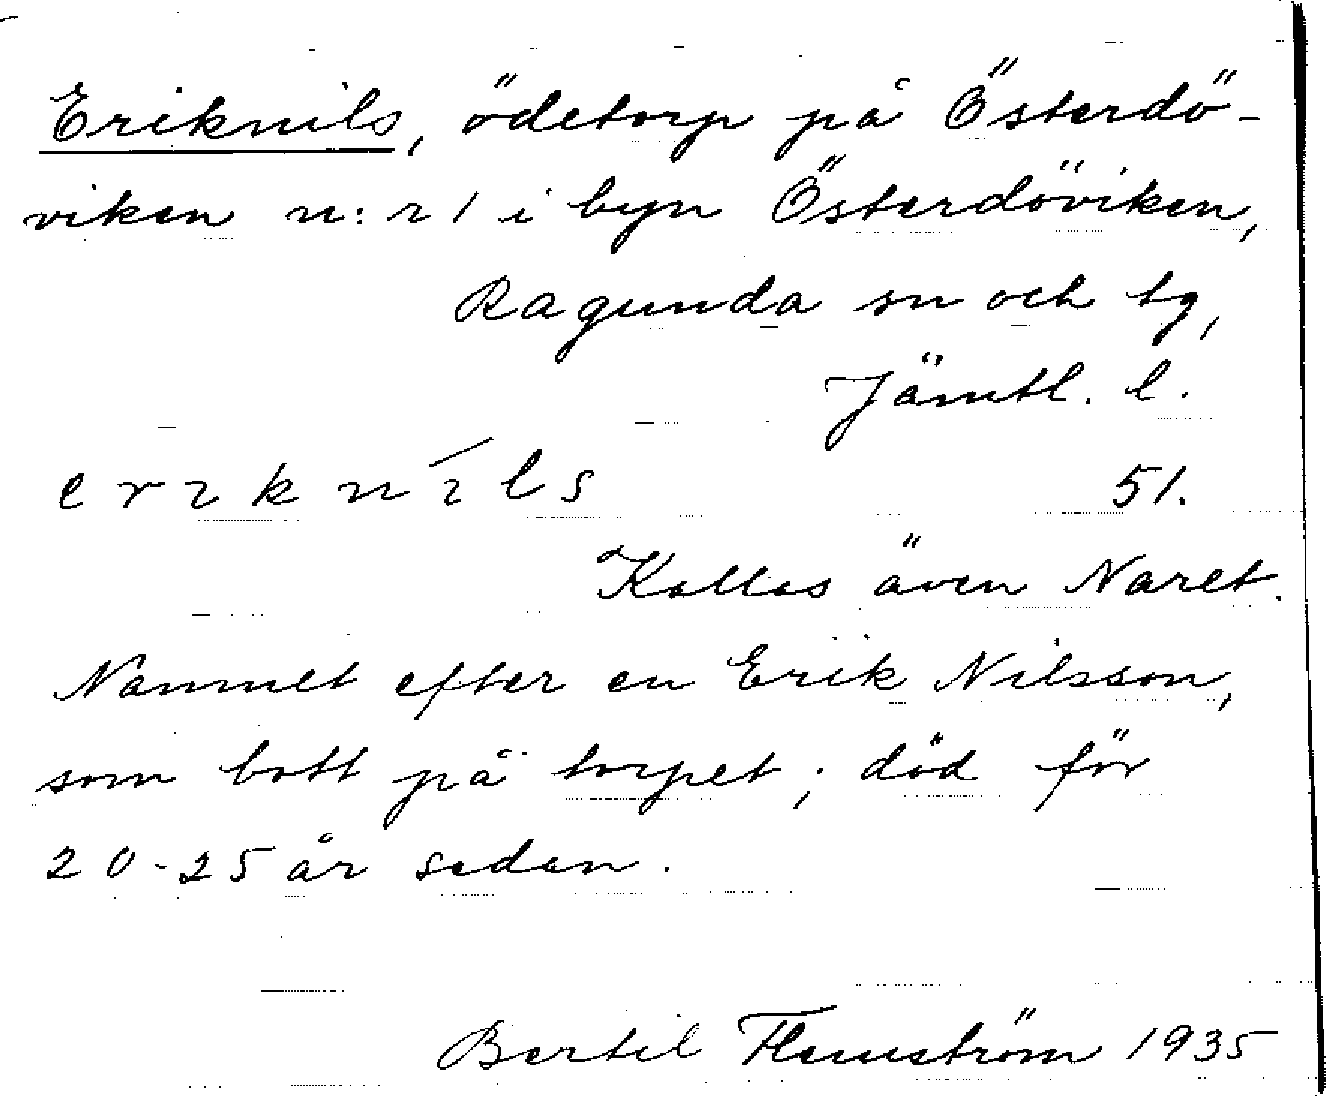 Eriknils, ödetorp på Österdö-
viken n:r 1 i byn Österdöviken,
Ragunda sn och tg,
Jämtl. l.
erıknı́ls 51.
Kallas även Naret.
Namnet efter en Erik Nilsson,
som bott på torpet; död för
20-25 år sedan.
Bertil Flemström 1935